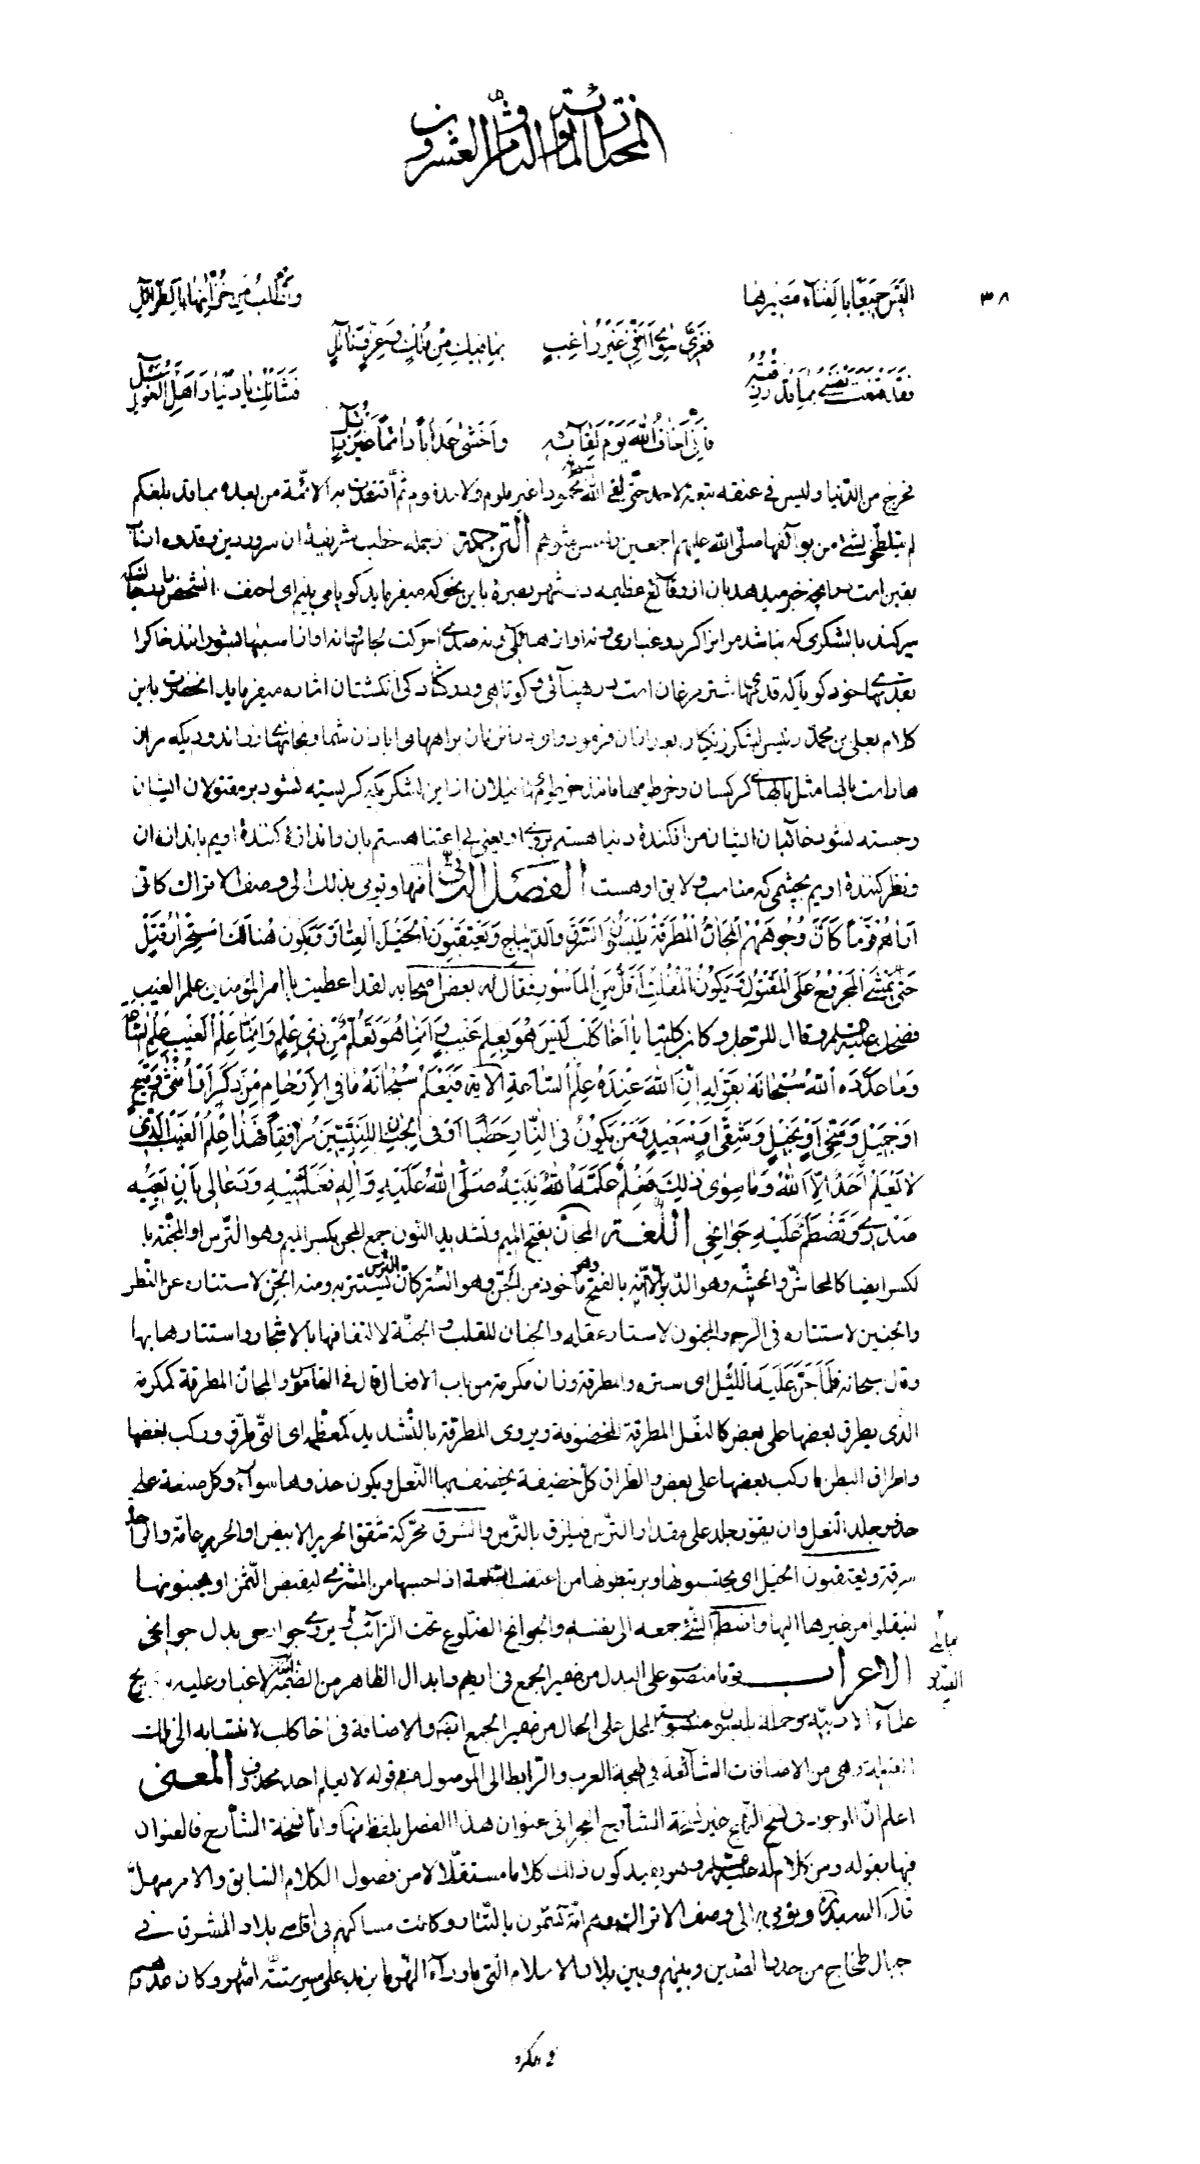 المختار المائة والثامن والعشرون
٣٨
أليس جميعا بالفناء مصيرها وتطلب من خزانها بالطوائل
فغرّي سواي إنّني غير راغب بما فيك من ملك وعزّ ونائل
فقد قنعت نفسي بما قد رزقته فشأنك يا دنيا وأهل الغوائل
فإنّي أخاف اللّه يوم لقائه وأخشى عذابا دائما غير زائل
فخرج من الدّنيا وليس في عنقه تبعة لأحد حتّى لقى اللّه محمودا غير ملوم ولا مذموم ثمّ اقتدت به الأئمّة من بعده بما قد بلغكم
لم يتلطّخوا بشيء من بوائقها صلّى اللّه عليهم أجمعين الترجمة از جمله خطب شريفه آن سرور دين وقدوه
خبر ميدهد بآن از وقائع عظيمه در شهر بصره باين نحو كه ميفرمايد گويا مى بينم اى احنف آن شخص را در حالتى كه
سير كند با لشكرى كه نباشد مر او را گرد وغبارى ونه آواز ونه صداى حركت بشورانند خاك را
بقدمهاى خود گويا كه قدمهاى شتر مرغان است در پهنائى وكوتاهى اشاره ميفرمايد آنحضرت باين
كلام بعلي بن محمد رئيس لشكر زنگيان بعد از آن فرمود واى براههاى آبادان شما وخانهاى زر اندود
بالها مثل بالهاى كركسان وخرطومها مانند خرطومهاى فيلان از اين لشكرى كه گريسته نشود بر مقتولان ايشان
وجسته نشود غائبان ايشان من افكنده دنيا هستم بر روى او يعنى بى اعتنا هستم بآن واندازه كننده اويم باندازه آن
ونظر كننده اويم بچشمى كه مناسب ولايق او هست الفصل الثاني منها ويومي بذلك إلى وصف الأتراك كأنّي
أراهم قوما كأنّ وجوههم المجانّ المطرقة يلبسون السّرق والدّيباج ويعتقبون الخيل العتاق ويكون هناك استحرار قتل
حتّى يمشي المجروح على المقتول ويكون المفلت أقلّ من المأسور فقال له بعض أصحابه لقد أعطيت يا أمير المؤمنين علم الغيب
فضحك عليه السلام وقال للرّجل وكان كلبيّا يا أخا كلب ليس هو بعلم غيب وإنّما هو تعلّم من ذي علم وإنّما علم الغيب علم السّاعة
وما عدّده اللّه سبحانه بقوله إنّ اللّه عنده علم السّاعة الآية فيعلم سبحانه ما في الأرحام من ذكر أو أنثى وقبيح
أو جميل وسخيّ أو بخيل وشقيّ أو سعيد ومن يكون في النّار حطبا أو في الجنان للنّبيّين مرافقا فهذا علم الغيب الّذي
لا يعلمه أحد إلّا اللّه وما سوى ذلك فعلم علّمه اللّه نبيّه صلّى اللّه عليه وآله فعلّمنيه ودعا لي بأن يعيه
صدري وتضطمّ عليه جوانحي اللّغة المجانّ بفتح الميم وتشديد النّون جمع المجنّ بكسر الميم وهو التّرس أو المجنّة با
لكسر أيضا كالمحاشّ والمحشّة وهو الدّبر مأخوذ من الجنّ وهو السّتر كأنّ الترس يستتر به ومنه الجنّ لاستتاره عن النّظر
والجنين لاستتاره في الرحم والمجنون لاستتار عقله والجنان للقلب والجنّة لالتفافها بالأشجار واستتارها بها
وقال سبحانه فلمّا جنّ عليه اللّيل أى ستره والمطرقة وزان مكرمة من باب الأفعال قال في القاموس والمجانّ المطرقة كمكرمة
الذي يطرق بعضها على بعض كالنّعل المطرقة المخصوفة ويروى المطرّقة بالتّشديد كمعظّمة أى الّتي طرّق وركب بعضها
واطراق البطن ما ركب بعضها على بعض والطراق كلّ خصيفة يخصف بها النّعل ويكون حذوها سواء وكلّ صنعة على
حذو وجلد النّعل وان يقوّر جلد على مقدار الترس فيلزق بالتّرس والسّرق محرّكة شقق الحرير الأبيض أو الحرير عامّة والواحدة
سرقة ويعتقبون الخيل أى يحتبسونها ويرتبطونها من اعتقب السّلعة إذا حبسها من المشتري ليقبض الثّمن أو يجنبونها
لينتقلوا من غيرها إليها واضطمّ الشّيء جمعه إلى نفسه والجوانح الضّلوع تحت التّرائب ويروى جوارحى بدل جوانحي
الاعراب قوما منصوب على البدل من ضمير الجمع في أراهم وابدال الظاهر من الضّمير لا غبار عليه
علماء الأدبيّة وجملة يلبسون منصوبة المحلّ على الحال من ضمير الجمع والاضافة في أخا كلب لانتسابه إلى تلك
القبيلة وهي من الاضافات الشّائعة في لهجة العرب والرّابط إلى الموصول في قوله لا يعلم أحد محذوف المعنى
اعلم أنّ الموجود في نسخ النّهج غير نسخة الشّارح البحراني عنوان هذا الفصل بلفظ منها وأمّا نسخة الشّارح فالعنوان
فيها بقوله ومن كلام له عليه السلام وهو يفيد كون ذلك كلاما مستقلّا لا من فصول الكلام السّابق والأمر سهل
قال السيد ره ويومي به إلى وصف الأتراك وكانت مساكنهم في أقاصى بلاد المشرق في
جبال طخاج من حدود الصّين وبينهم وبين بلاد الاسلام الّتي ما وراء النّهر ما يزيد على مسير ستّة أشهر وكان عددهم